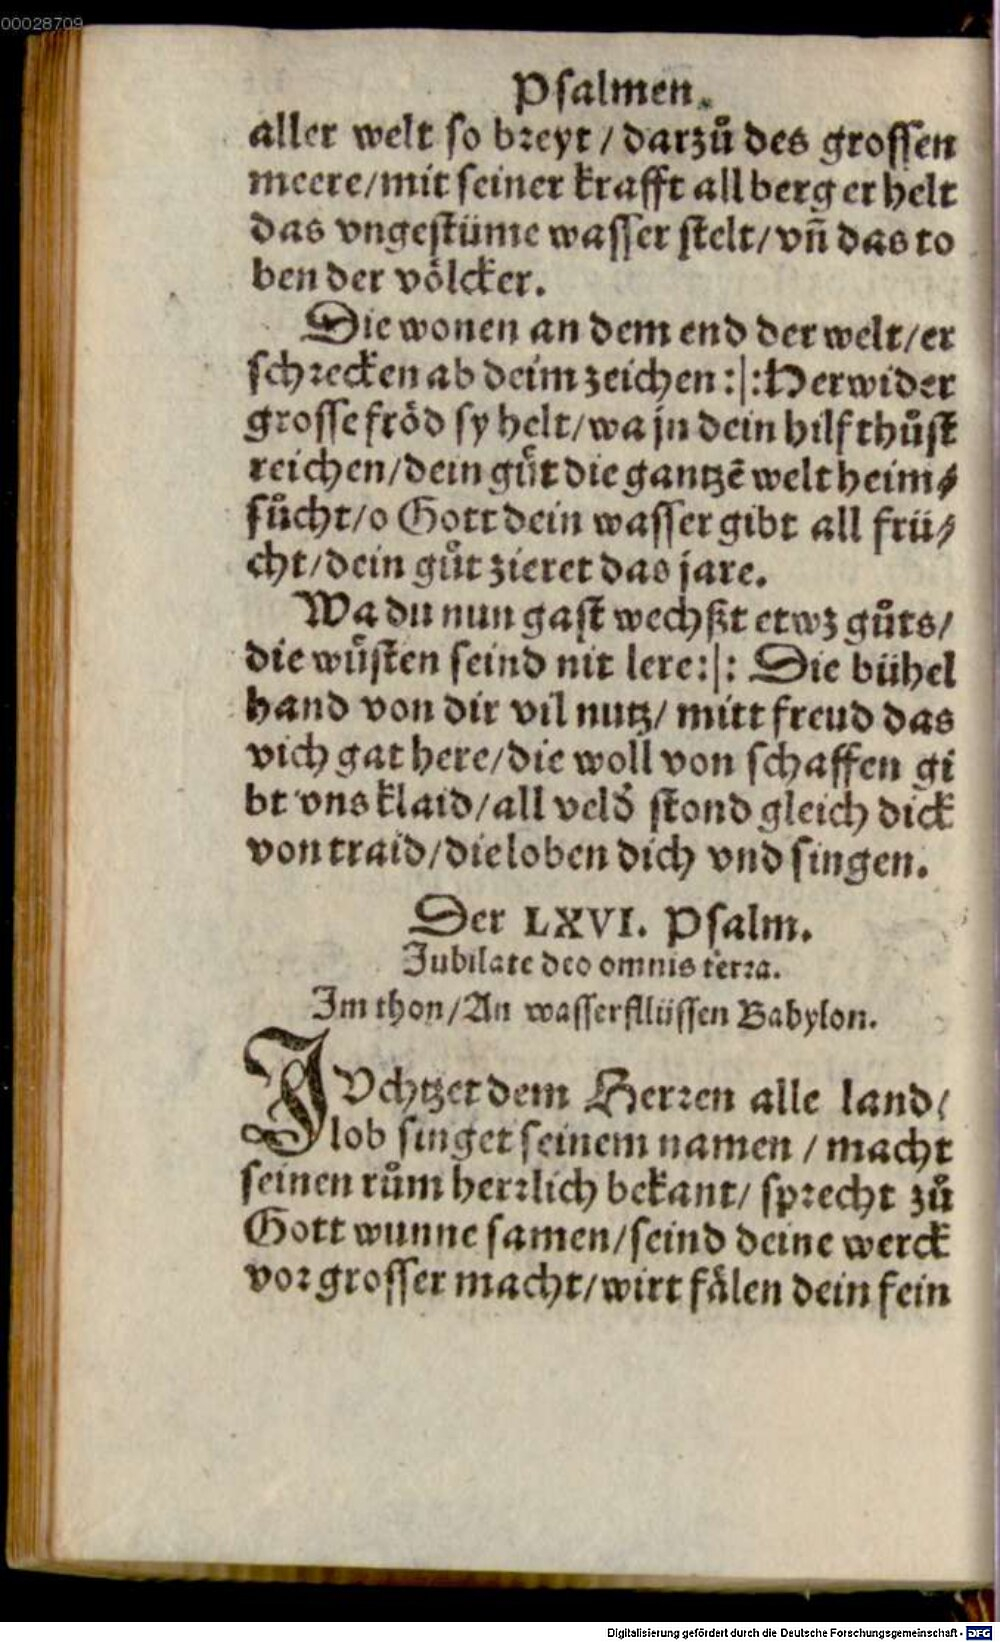 00028709
Psalmen.
aller welt so breyt / darzů des grossen
meere/mit seiner krafft all berg er helt
das vngestüme wasser stelt/vñ das to
ben der völcker.
Die wonen an dem end der welt/er
schrecken ab deim zeichen :|: Herwider
grosse fröd sy helt/wa jn dein hilf thůst
reichen/dein gůt die gantzē welt heim⸗
sůcht/o Gott dein wasser gibt all frü⸗
cht/dein gůt zieret das jare.
Wa du nun gast wechßt etwz gůts/
die wůsten seind nit lere:|: Die bühel
hand von dir vil nutz/ mitt freud das
vich gat here/die woll von schaffen gi
bt vns klaid/all veld stond gleich dick
von traid/die loben dich vnd singen.
Der LXVI. Psalm.
Jubilate deo omnis terra.
Im thon/An wasserflüssen Babylon.
JVchtzet dem Herren alle land/
lob singet seinem namen / macht
seinen rům herrlich bekant/ sprecht zů
Gott wunne samen/seind deine werck
vor grosser macht/wirt fälen dein fein
Digitalisierung gefördert durch die Deutsche Forschungsgemeinschaft - DFG